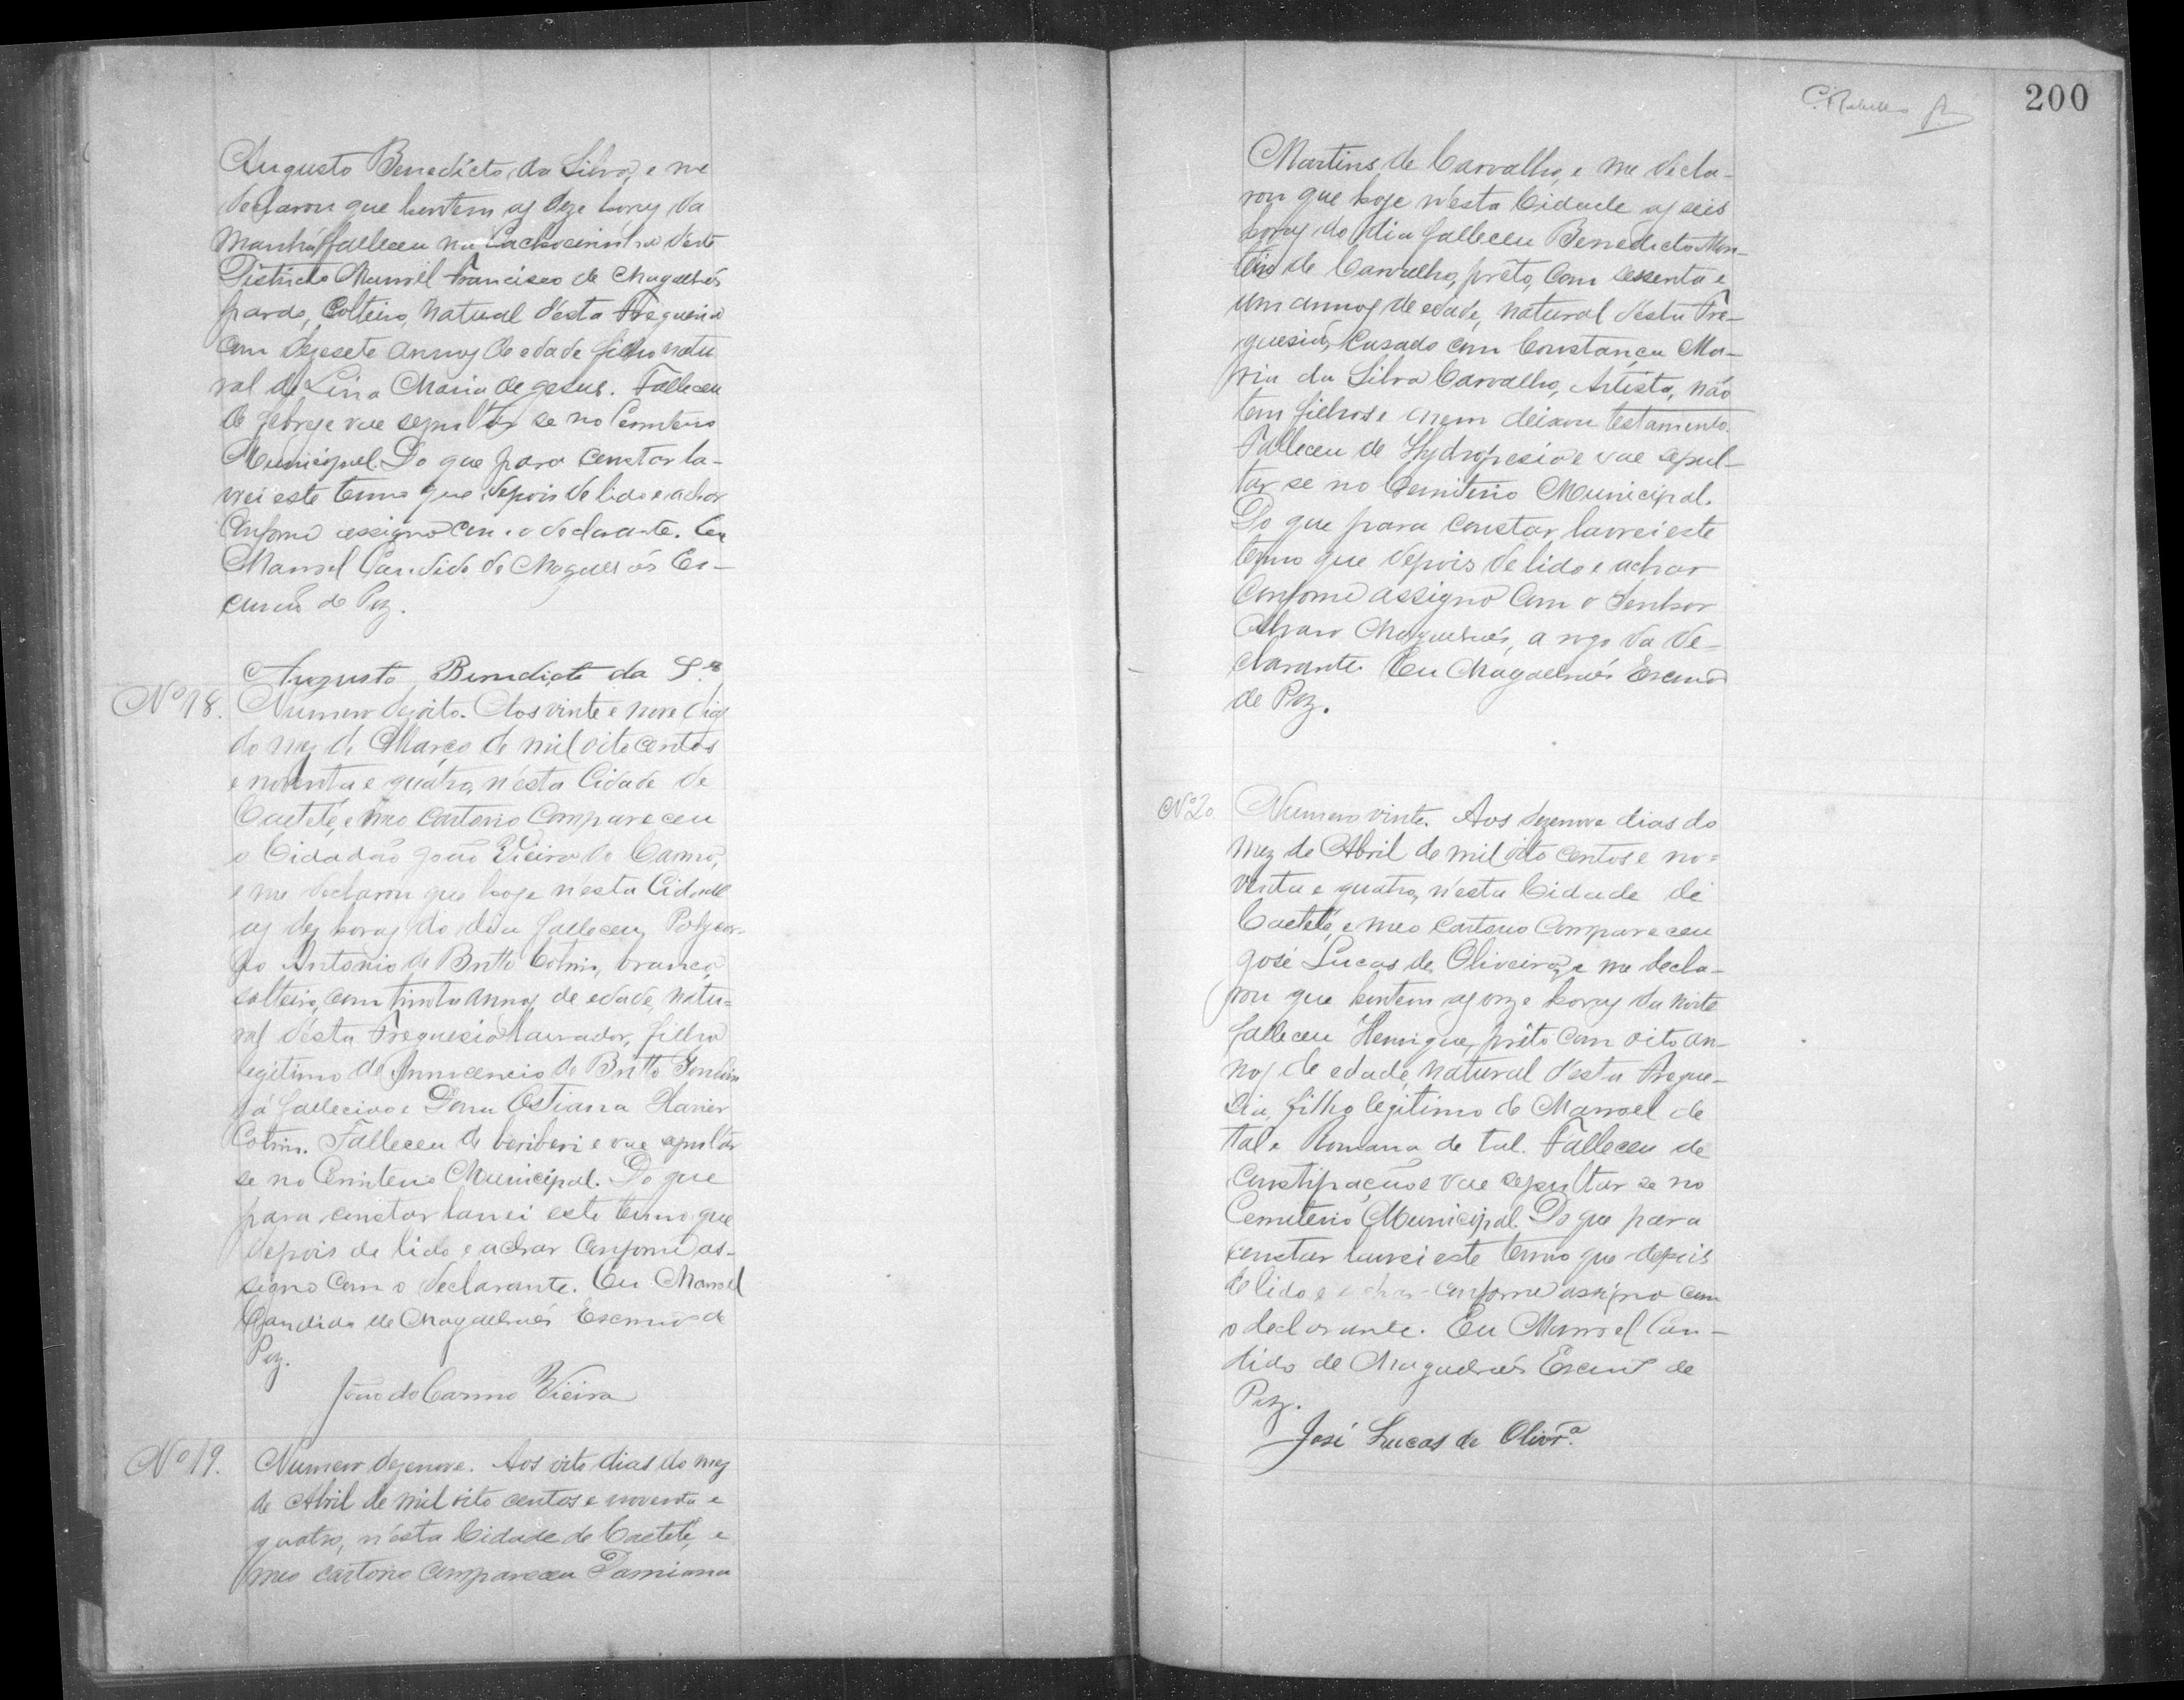 Augusto Benedicto da Silva, e me
declarou que hontem as deze horas da
manhã falleceu na Cachoeirinha d'este
Districto Manoel Francisco de Magalhães
pardo, solteiro, natural d'esta Freguesia
com dezesete annos de edade filho natu
ral de Lina Maria de Jesus. Falleceu
de febre e vae sepultar se no Cemiterio
Municipal. Do que para constar la-
vrei este termo que depois de lido e achar
conforme assigno com o declarante. Eu
Manoel Candido de Magalhães Es-
crivão de Paz.
Augusto Benedicto da S.ª
Nº 18.
Numero dezoito. Aos vinte e nove dias
do mez de Março de mil oito centos
e noventa e quatro, n'esta Cidade de
Caeteté, e meo Cartorio compareceu
o Cidadão João Vieira do Carmo,
e me declarou que hoje n'esta Cidade
as dez horas do dia falleceu Polycar-
po Antonio de Britto Cotrim, branco,
solteiro, com trinta annos de edade, natu=
ral d'esta Freguesia lavrador, filho
legitimo de Innocencio de Britto
já fallecido e Dona Xavier
Cotrim. Falleceu de beriberi e vae sepultar
se no Cemiterio Municipal. Do que
para constar lavrei este termo que
depois de lido e achar conforme as-
signo com o declarante. Eu Manoel
Candido de Magalhães Escrivão de
Paz.
João do Carmo Vieira
Nº 19.
Numero dezenove. Aos oito dias do mez
de Abril de mil oito centos e noventa e
quatro, n'esta Cidade de Caeteté, e
meo cartorio compareceu Damiana
200
Martins de Carvalho, e me decla-
rou que hoje n'esta Cidade as seis
horas do dia falleceu Benedicto Mar-
tins de Carvalho, preto, com sessenta e
um annos de edade, natural d'esta Fre-
guesia, casado com Constança Ma-
ria da Silva Carvalho, Artista, não
tem filhos e nem deixou testamento.
Falleceu de Hydropesia e vae sepul-
tar se no Cemiterio Municipal.
Do que para constar lavrei este
termo que depois de lido e achar
conforme assigno com o Senhor
Alvaro Magalhães, a rogo da de-
clarante. Eu Magalhães Escrivão
de Paz.
Nº 20.
Numero vinte. Aos dezenove dias do
mez de Abril de mil oito centos e no=
venta e quatro, n'esta Cidade de
Caeteté, e meo Cartorio compareceu
José Lucas de Oliveira, e me decla-
rou que hontem as onze horas da noite
falleceu Henrique, prêto com oito an-
nos de edade, natural d'esta Fregue-
sia, filho legitimo de Manoel de
tal e Romana de tal. Falleceu de
Constipação e vae sepultar se no
Cemiterio Municipal. Do que para
constar lavrei este termo que depois
de lido e achar conforme assigno com
o declarante. Eu Manoel Can-
dido de Magalhães Escrivão de
Paz.
José Lucas de Olivrª.